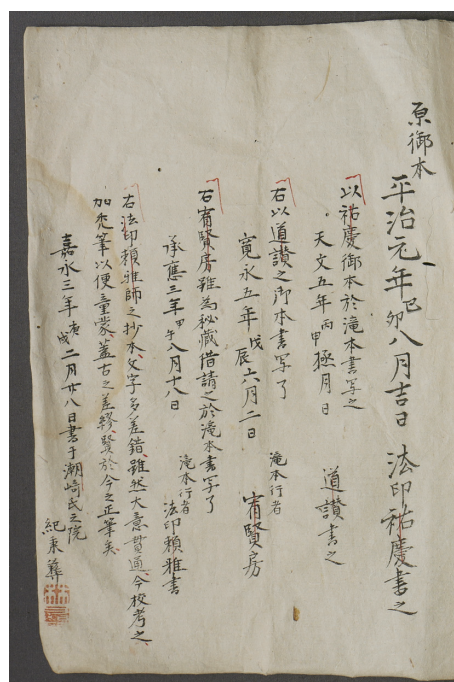 原御本
平治元年己卯八月吉日 法印祐慶書之
以祐慶御本於滝本書写之
天文五年丙申極月日 道讃書之
右以道讃之御本書写了
寛永五年戊辰六月二日 滝本行者 宥賢房
右宥賢房雖為秘蔵借請之於滝本書写了
承應三年甲午八月十八日 滝本行者 法印頼雅書
右法印頼雅師之抄本文字多差錯雖然大意貫通今校考之
加禿筆以便童蒙蓋古之差繆賢於今之正筆矣
嘉永三年庚戌二月廿八日書于潮崎氏之院
紀秉彝